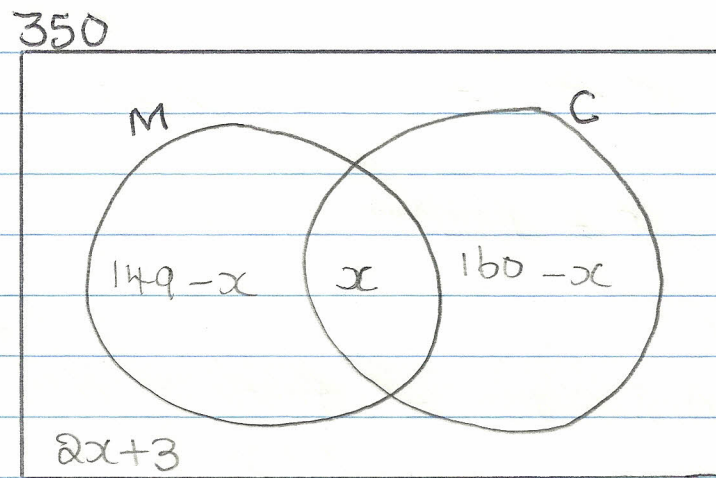 350
M C
149-x x 160-x
2x+3